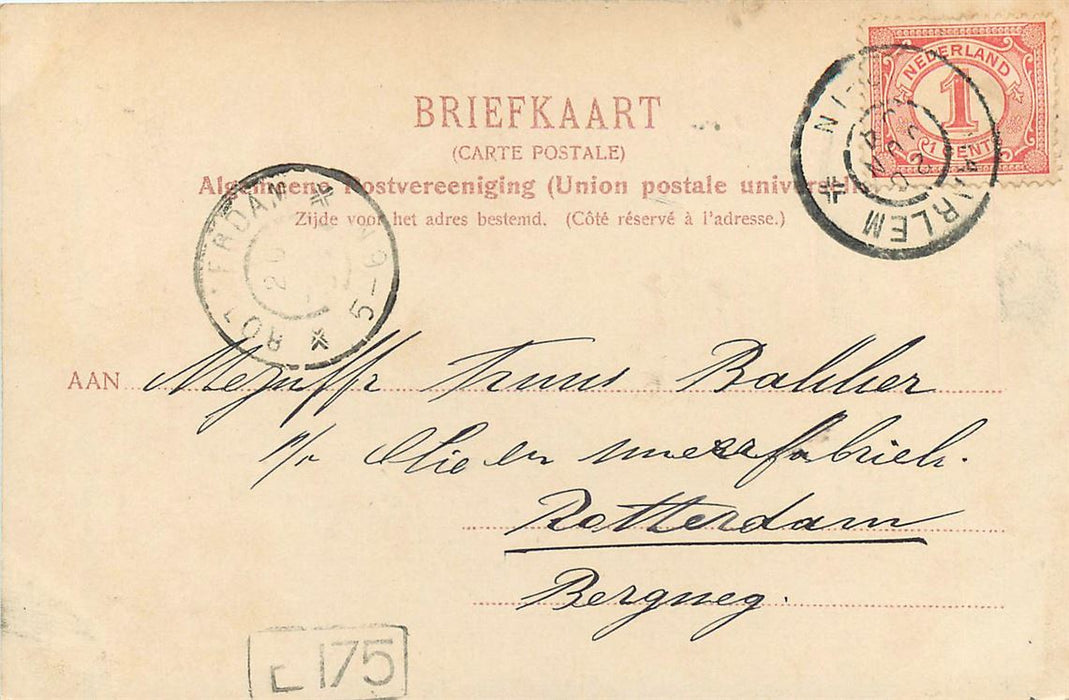 NEDERLAND
1
1 CENT
HAARLEM
BRIEFKAART
(CARTE POSTALE)
Algemeene Postvereeniging (Union postale universelle)
Zijde voor het adres bestemd. (Côté réservé à l'adresse.)
ROTTERDAM
5-9 N
AAN Mejuffr Truus Bakker
p/a Olie en smeerfabriek.
Rotterdam
Bergweg.
E 175